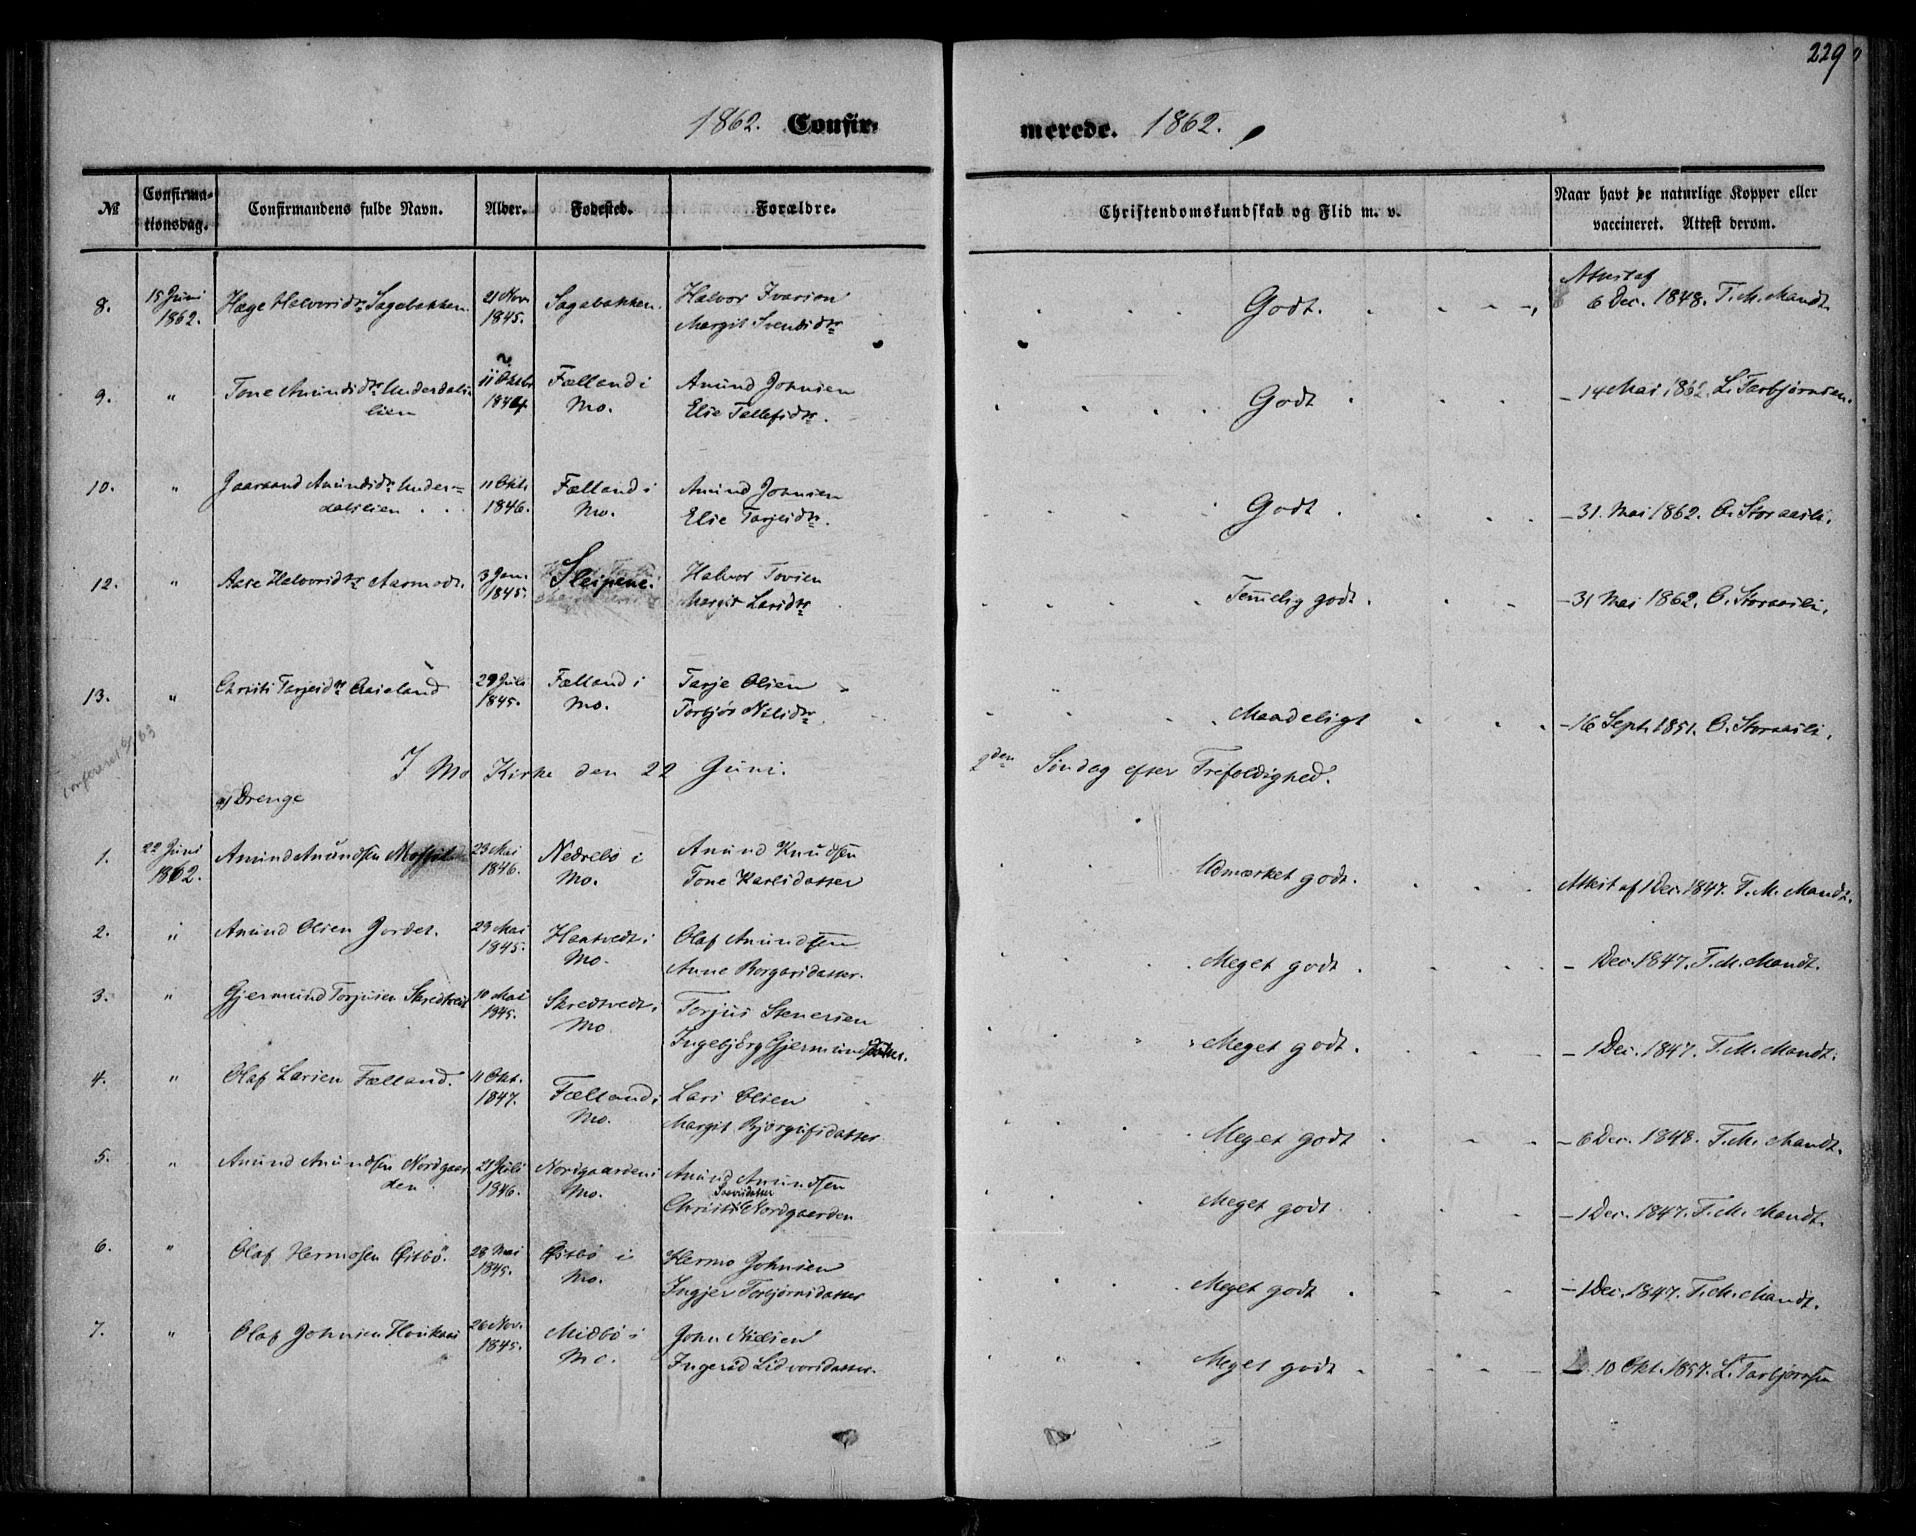 229
1862. Confir-
merede. 1862.
№ Confirma-tionsdag. Confirmandens fulde Navn. Alder. Fødested. Forældre. Christendomskundskab og Flid m. v. Naar havt de naturlige Kopper eller vaccineret. Attest derom.
8. 15 Juni 1862. Hæge Halvorsdr Sagebakken. 21 Nov. 1845. Sagebakken. Halvor Ivarsen Margit Svensdr Godt. Attest af 6 Dec. 1848. T. M. Mandt.
9. " Tone Amundsdr Underdalslien 11 Oktbr 1844 Fælland i Mo. Amund Johnsen Else Tallefsdr. Godt - 14 Mai 1862. L. Tarbjørnsen.
10. " Gaarand Amundsdr Underdalslien 11 Oktb 1846. Fælland i Mo. Amund Johnsen Else Tarjeisdr. Godt - 31. Mai 1862. O. Storaasli.
12. " Aase Halvorsdr Aarmodt. 3 Jan. 1845. Sleipene. Halvor Tovsen Margit Larsdr Temelig godt. - 31 Mai 1862. O. Storaasli.
13. " Christi Tarjeisdr Aaseland 29 Juli 1845. Fælland i Mo. Tarje Olsen Torbjør Nilsdr. Maadeligt - 16 Sept. 1851. O. Storaasli.
I Mo Kirke den 22 Juni. 2den Søndag efter Trefoldighed.
a) Drenge
1. 22 Juni 1862. Amund Amundsen 23 Mai 1846. Nedrebø i Mo. Amund Knudsen Tone Karlsdatter Udmærket godt. Attest af 1 Dec. 1847. T. M. Mandt.
2. " Amund Olsen Jordet. 29 Mai 1845. Haatvedt i Mo. Olaf Amundsen Anne Borgarsdatter. Meget godt - 1 Dec. 1847. T. M. Mandt.
3. " Gjermund Torjusen Skredtvedt 10 Mai 1845. Skredtvedt i Mo. Torjus Stenersen Ingebjörg Gjermundsdatter. Meget godt. - 1 Dec. 1847. T. M. Mandt.
4. " Olaf Larsen Fælland. 11 Okt. 1847. Fælland i Mo. Lars Olsen Margit Bjørgufsdatter Meget godt - 6 Dec. 1848. T. M. Mandt.
5. " Amund Amundsen Nordgaarden. 21 Juli 1846. Nordgaarden i Mo. Amund Amundsen Christi Nordgaarden Meget godt - 1 Dec. 1847. T. M. Mandt.
6. " Olaf Hermosen Østbö. 28 Mai 1845. Østbö i Mo. Hermo Johnsen Ingjer Torbjørnsdatter Meget godt - 1 Dec. 1847. T. M. Mandt.
7. " Olaf Johnsen 26 Nov. 1845. Midbö i Mo. John Nielsen Ingerid Lidvorsdatter. Meget godt 10 Okt. 1857. L. Tarbjørnsen